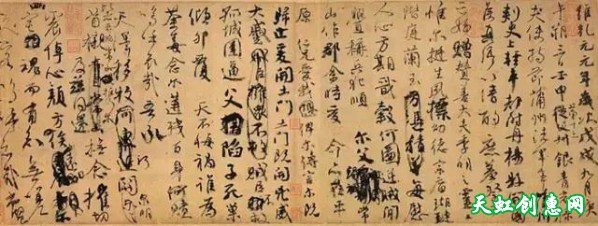 維乾元元年歲次戊戌九月庚
午朔三日壬申第十三叔銀青光祿
夫使持節蒲州諸軍事蒲州
刺史上輕車都尉丹楊縣開國
侯真卿以清酌庶羞祭于
亡姪贈贊善大夫季明之靈曰
惟爾挺生夙標幼德宗廟瑚璉
階庭蘭玉每慰
人心方期戩穀何圖逆賊閒
釁稱兵犯順爾父竭誠常
山作郡余時受命亦在平
原仁兄愛我俾爾傳言爾既
歸止爰開土門土門既開凶威
大蹙賊臣不救
孤城圍逼父陷子死巢
傾卵覆天不悔禍誰為
荼毒念爾遘殘百身何贖
嗚乎哀哉吾承
天澤移牧河關泉明
首櫬及茲同還撫念摧切
震悼心顏方俟
魂而有知無嗟
天虹创惠网